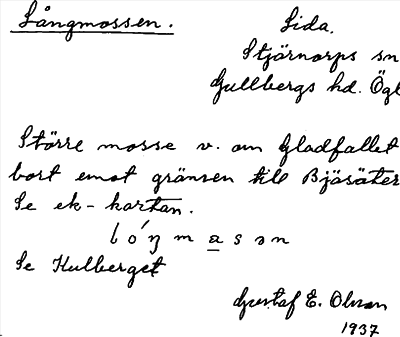 Långmossen.
Sida.
Stjärnorps sn
Gullbergs hd. Ögl
Större mosse v. om Gladfallet
bort emot gränsen till Bjäsäter
Se ek-kartan.
lóŋmasən
Se Kulberget
Gustaf E. Olsson
1937